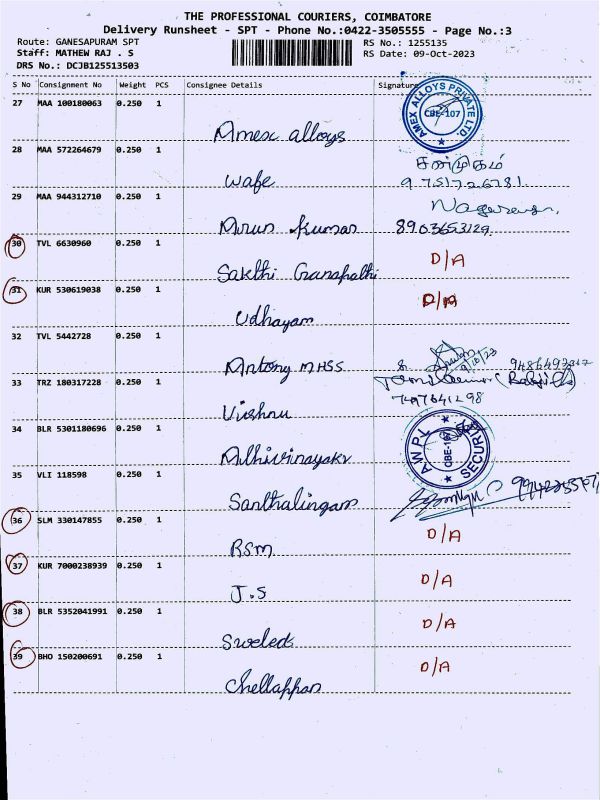 THE PROFESSIONAL COURIERS, COIMBATORE
Delivery Runsheet - SPT - Phone No.:0422-3505555 - Page No.:3
Route: GANESAPURAM SPT RS No.: 1255135
Staff: MATHEW RAJ . S RS Date: 09-Oct-2023
DRS No.: DCJB125513503
S No Consignment No Weight PCS Consignee Details Signature
27 MAA 100180063 0.250 1
AMEX ALLOYS PRIVATE LTD.
CBE-107
Amex alloys
28 MAA 572264679 0.250 1
சண்முகம்
wafe 9751726781.
29 MAA 944312710 0.250 1
Arun Kumar 8903653129
30 TVL 6630960 0.250 1
D/A
Sakthi Ganapathi
31 KUR 530619038 0.250 1
D/A
Udhayam
32 TVL 5442728 0.250 1
9/10/23
Antony MHSS
33 TRZ 180317228 0.250 1
7497641298
Vishnu
34 BLR 5301180696 0.250 1
A W P L SECURITY
CBE-107
Adhivinayakr
35 VLI 118598 0.250 1
Santhalingam
36 SLM 330147855 0.250 1
D/A
RSM
37 KUR 7000238939 0.250 1
D/A
J.S
38 BLR 5352041991 0.250 1
D/A
Sweled
39 BHO 150200691 0.250 1
D/A
Chellappan